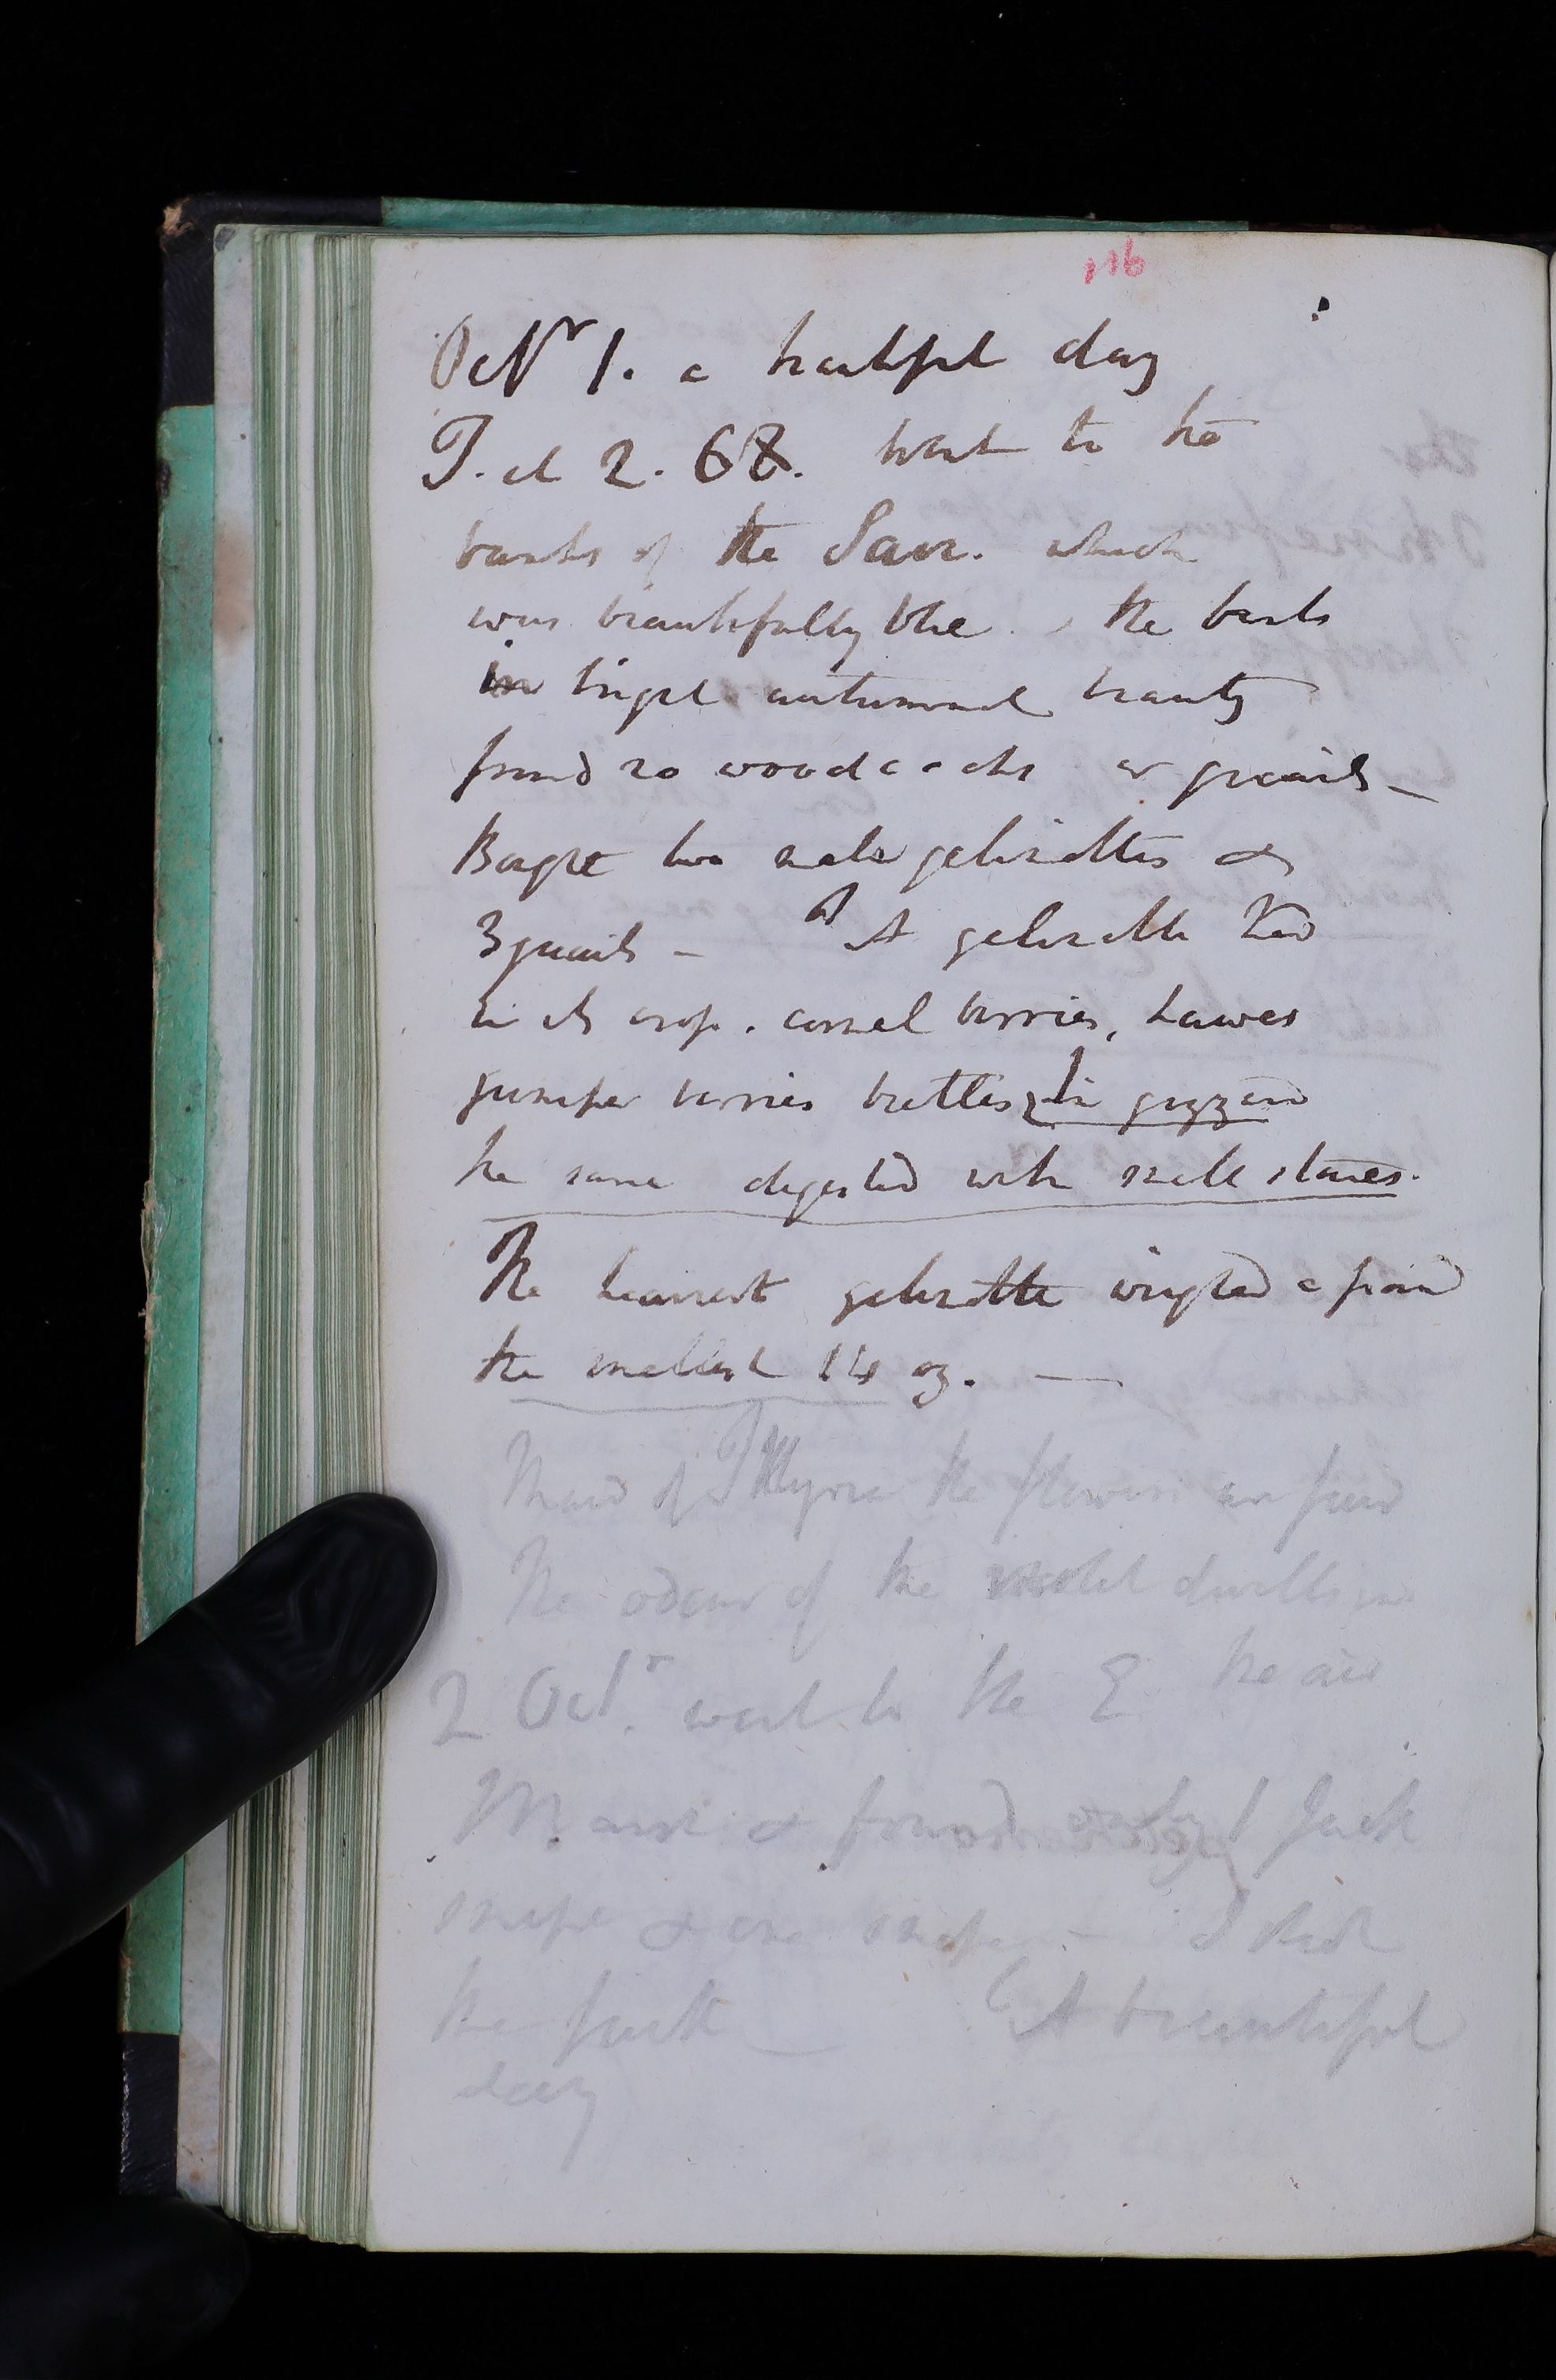 116
Oct<sup>r</sup> 1. a beautiful day
T. at 2. 68. went to the
banks of the Savr. which
was beautifully blue. the banks
in bright autumnal beauty
found no woodcocks or quails _
Bought two male gelinottes &
3 quails - A gelinotte had
in its crop. cornel berries, hawes
juniper berries beetles, in gizzard
the same digested with small stones.
The heaviest gelinotte weighed a pound
the smallest 14 oz. —
Maid of the flowers are
The odour of the violet dwells in
the air
2 Oct<sup>r</sup>. went to the E.
& found only 1 Jack
snipe & one snipe - I shot
the jack _ A beautiful
day